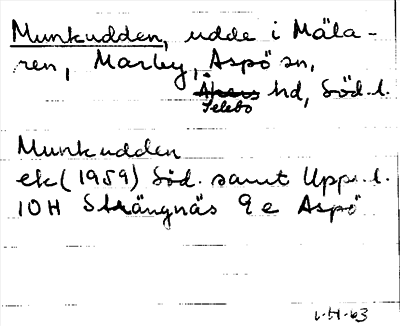 Munkudden, udde i Mäla-
ren, Marby, Aspö sn,
Åkers hd, Söd. l.
Selebo
Munkudden
ek (1959) Söd. samt Upps. l.
10H Strängnäs 9 e Aspö